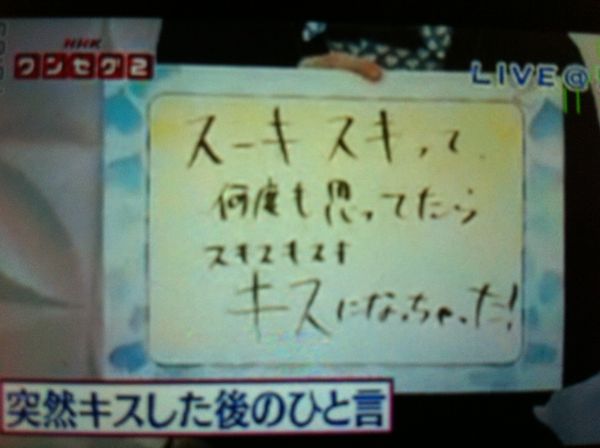 NHK
ワンセグ2
LIVE@
スーキ スキって
何度も思ってたら
スキスキスす
キスになっちゃった!
突然キスした後のひと言